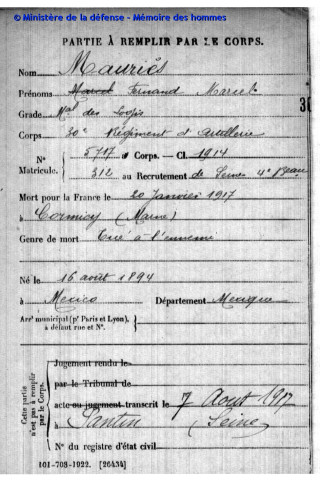 © Ministère de la défense - Mémoire des hommes
PARTIE À REMPLIR PAR LE CORPS.
Nom Mauriès
Prénoms Marcel Fernand Marcel
Grade Mal des Logis
Corps 30e Régiment d'Artillerie
N° Matricule. 5717 au Corps. — Cl. 1914
312 au Recrutement de Seine 4e Beau
Mort pour la France le 20 Janvier 1917
à Cormicy (Marne)
Genre de mort Tué à l'ennemi
Né le 16 août 1894
à Mexico Département Mexique
Arrt municipal (pr Paris et Lyon), à défaut rue et N°.
Cette partie n'est pas à remplir par le Corps.
Jugement rendu le
par le Tribunal de
acte ou jugement transcrit le 7 Août 1917
à Pantin (Seine)
N° du registre d'état civil
101-708-1922. [26434]